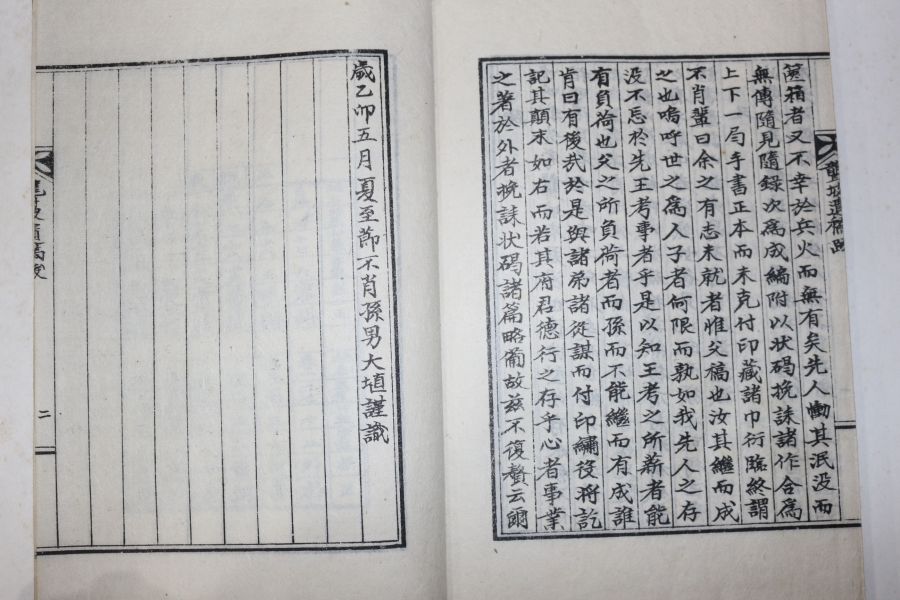 篋箱者又不幸於兵火而無有矣先人慟其泯没而
無傳隨見隨錄次為成編附以状碣挽誄諸作合為
上下一局手書正本而未克付印藏諸巾衍臨終謂
不肖輩曰余之有志未就者惟父稿也汝其繼而成
之也嗚呼世之為人子者何限而孰如我先人之存
没不忘於先王考事者乎是以知王考之所薪者能
有負荷也父之所負荷者而孫而不能繼而有成誰
肯曰有後我於是與諸弟諸從謀而付印繡役将訖
記其顛末如右而若其府君德行之存乎心者事業
之著於外者挽誄状碣諸篇略備故玆不復贅云爾
遺稿跋
歲乙卯五月夏至節不肖孫男大埴謹識
二